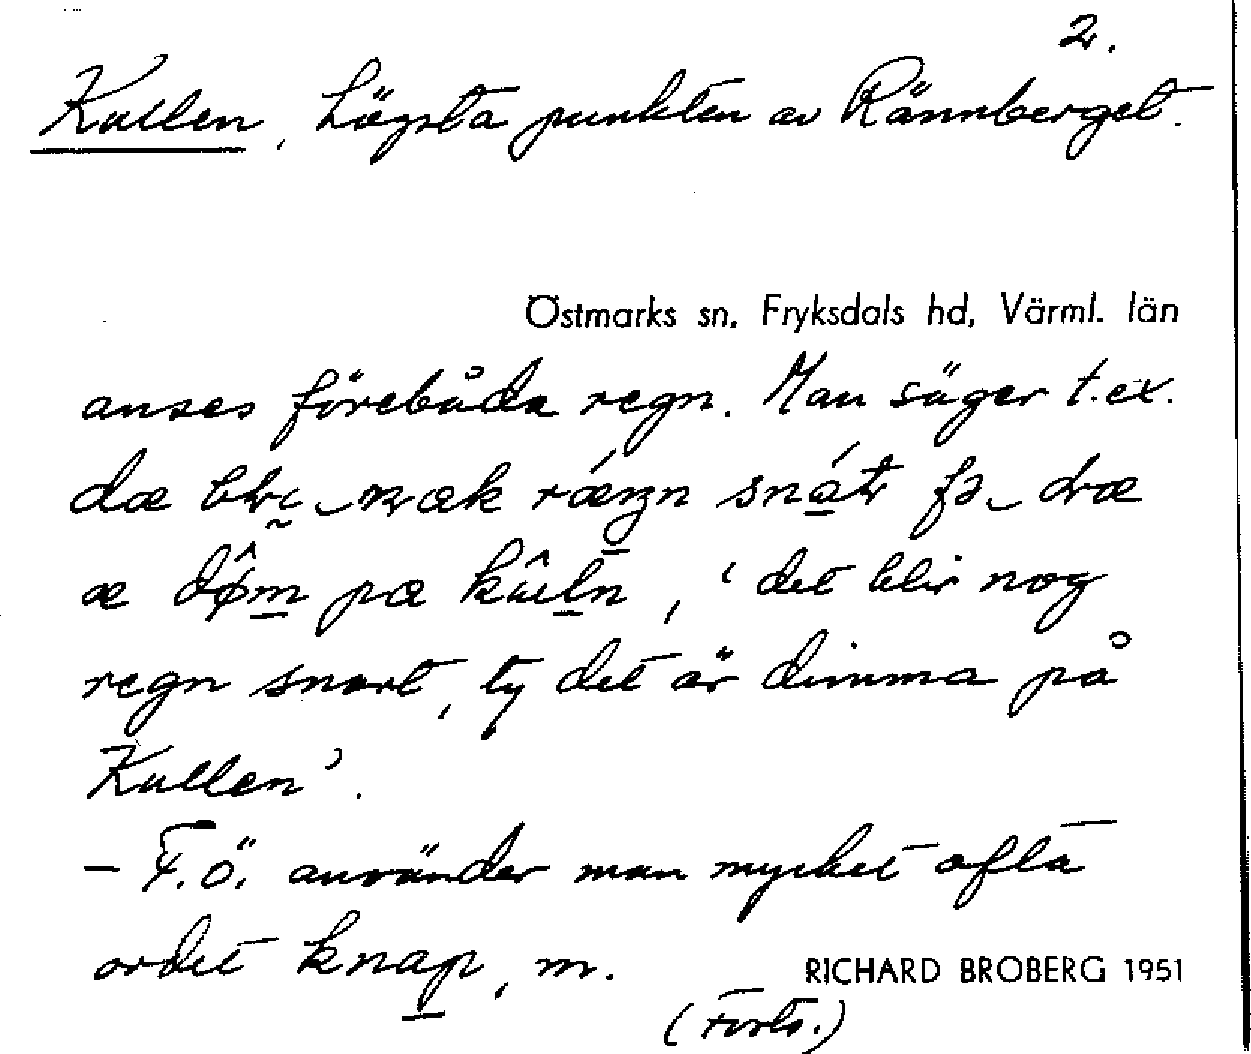 2.
Kullen, högsta punkten av Rännberget.
Östmarks sn. Fryksdals hd, Värml. län
anses förebåda regn. Man säger t.ex.
dæ
æ pæ , 'det blir nog
regn snart, ty det är dimma på
Kullen'.
– F.ö. använder man mycket ofta
ordet knap, m.
RICHARD BROBERG 1951
(Forts.)